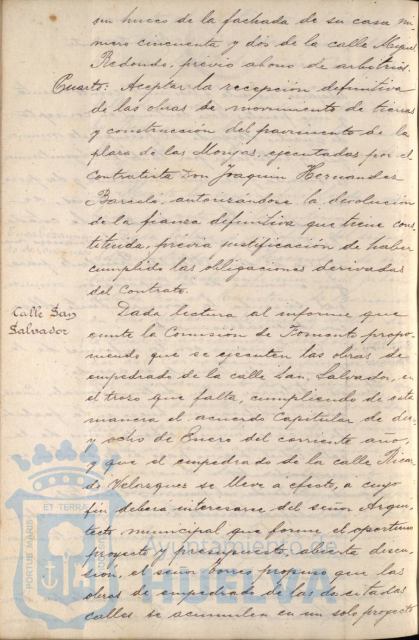 un hueco de la fachada de su casa nú-
mero cincuenta y dos de la calle Miguel
Redondo, previo abono de arbitrios.
Cuarto: Aceptar la recepción definitiva
de las obras de movimiento de tierras
y construcción del pavimento de la
plaza de las Monjas, ejecutadas por el
Contratista Don Joaquin Hernandez
Barcelo, autorizandose la devolución
de la fianza definitiva que tiene cons-
tituida, previa justificación de haber
cumplido las obligaciones derivadas
del Contrato.
Calle San
Salvador
Dada lectura al informe que
emite la Comisión de Fomento, propo-
niendo que se ejecuten las obras de
empedrado de la calle San Salvador, en
el trozo que falta, cumpliendo de esta
manera el acuerdo Capitular de diez
y ocho de Enero del corriente año,
y que el empedrado de la calle
de Velazquez se lleve a efecto, a cuyo
fin debera interesarse del señor Arqui-
tecto municipal que forme el oportuno
proyecto y presupuesto, abierta discu-
sion, el señor Torres propuso que las
obras de empedrado de las dos citadas
calles se acumulen en un solo proyecto
ET TERRAE
PORTUS MARIS
Ayuntamiento de
HUELVA